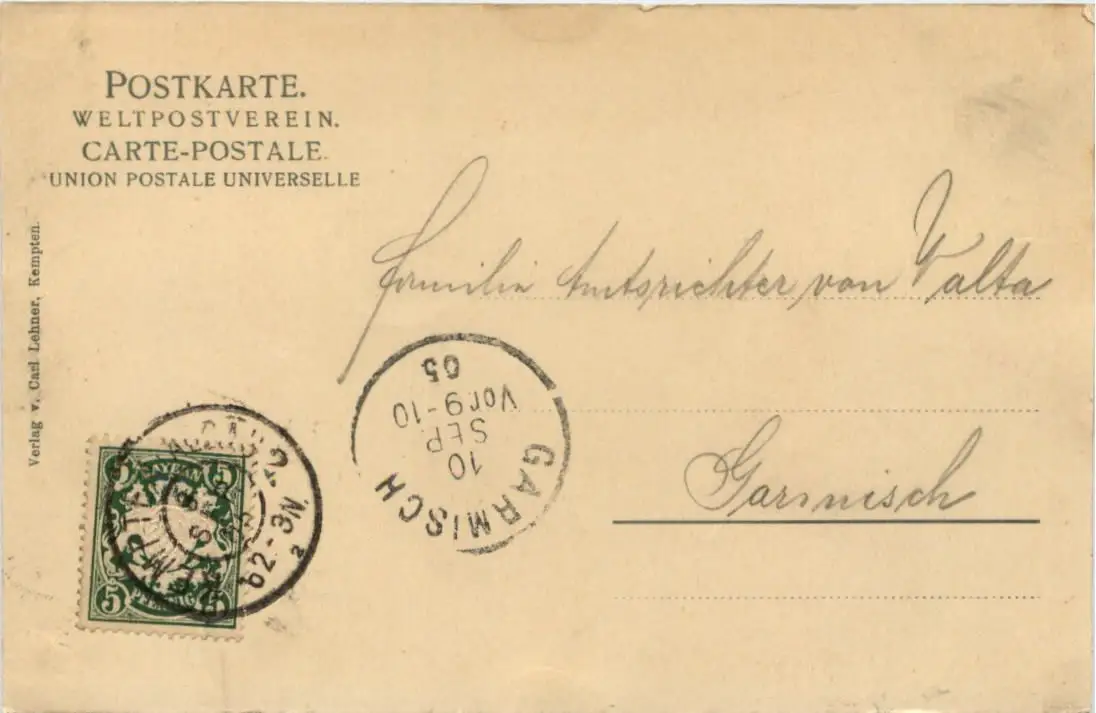 POSTKARTE.
WELTPOSTVEREIN.
CARTE-POSTALE.
UNION POSTALE UNIVERSELLE
Verlag v. Carl Lehner, Kempten.
Familie Amtsrichter von Valta
Garmisch
GARMISCH
10
SEP.
Vor 9-10
05
BAYERN
5 5
5 PFENNIG 5
2-3N.